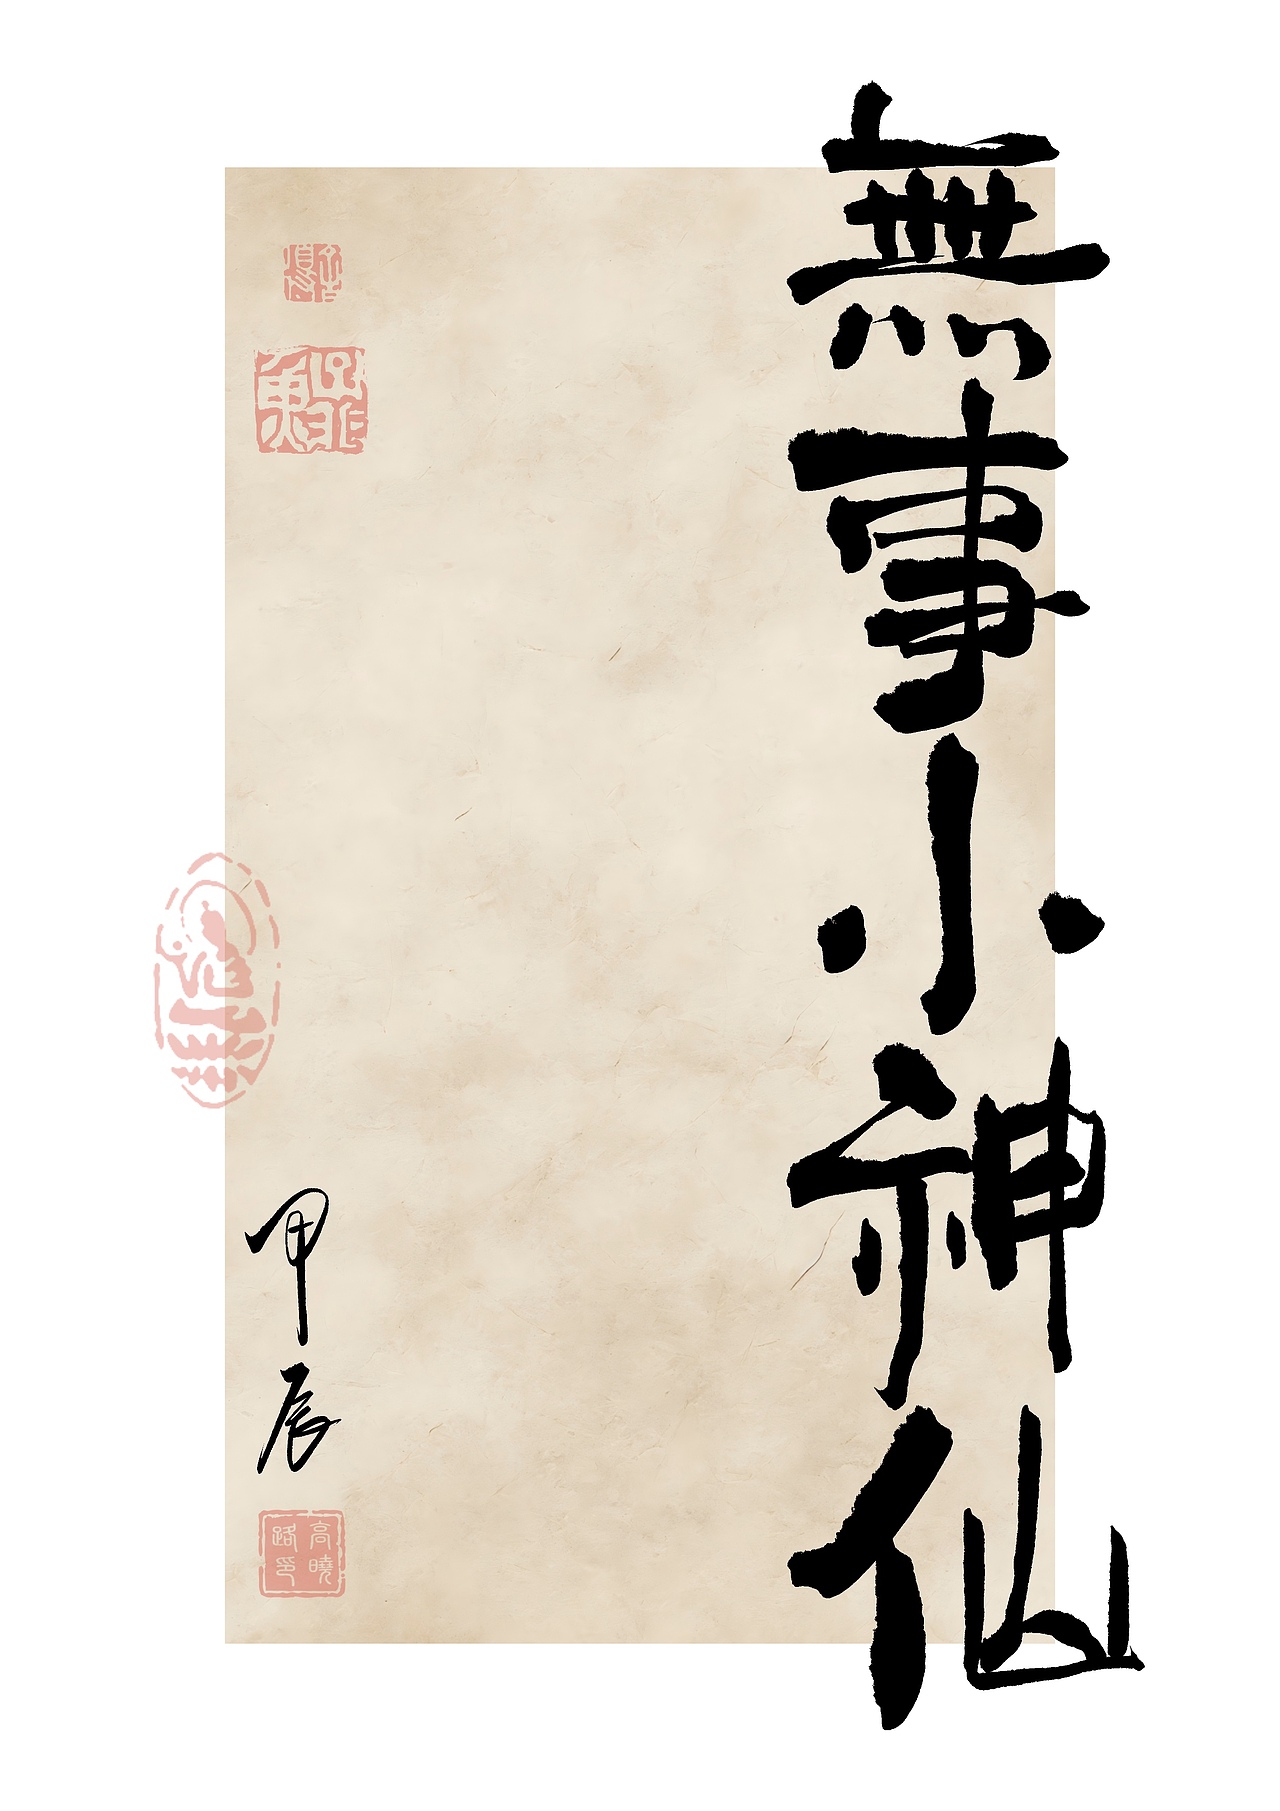 無事小神仙
甲辰
高曉
路印